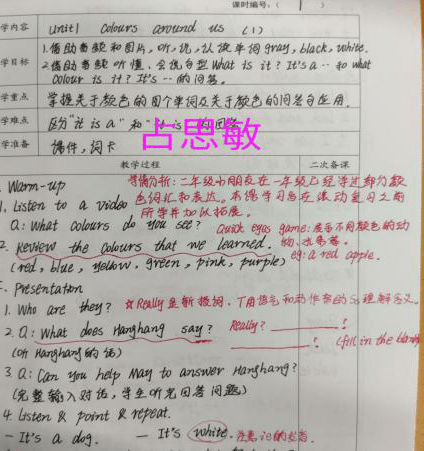 课时编号：( )
学内容 Unit1 Colours around us (1)
学目标 1.借助音频和图片，听，说，认读单词 gray, black, white.
2.借助音频听懂、会说句型 What is it? It's a … 和 what
colour is it? It's … 的问答。
学重点 掌握关于颜色的四个单词及关于颜色的问答句应用.
学难点 区分 "it is a" 和 "it is
占思敏
学准备 课件，词卡
教学过程 二次备课
Warm-up 学情分析：二年级小朋友在一年级已经学过部分颜
色词汇和表达。本课学习旨在滚动复习之前
所学并加以拓展。
1. Listen to a video
Q: What colours do you see? Quick eyes game: 展示不同颜色的动
物、水果等。
2. Review the colours that we learned. eg: a red apple.
(red, blue, yellow, green, pink, purple)
Presentation
1. Who are they? ☆Really 是新授词，T用语气和动作帮助Ss理解含义。
2. Q: What does Hanghang say? Really? ________!
________! (fill in the blank
(听 Hanghang 的话)
3 Q: Can you help May to answer Hanghang?
(完整输入对话，学生听完回答问题)
4. Listen & point & repeat.
- It's a dog. - It's white. 注意 ie的发音.